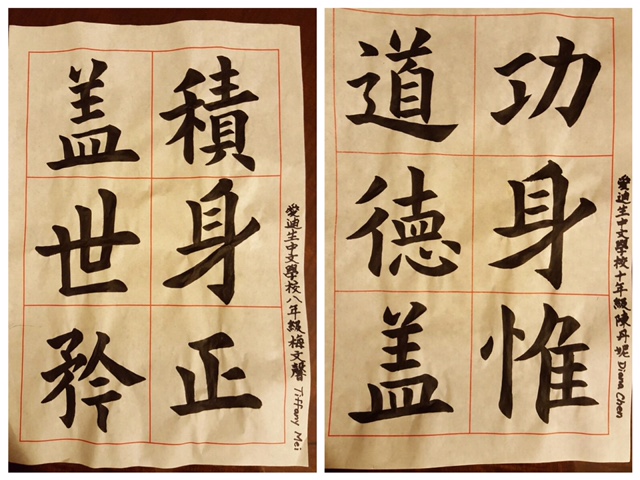 積身正
盖世矜
愛迪生中文學校八年級梅文馨 Tiffany Mei
功身惟
道德盖
愛迪生中文學校十年級陳丹妮 Diana Chen